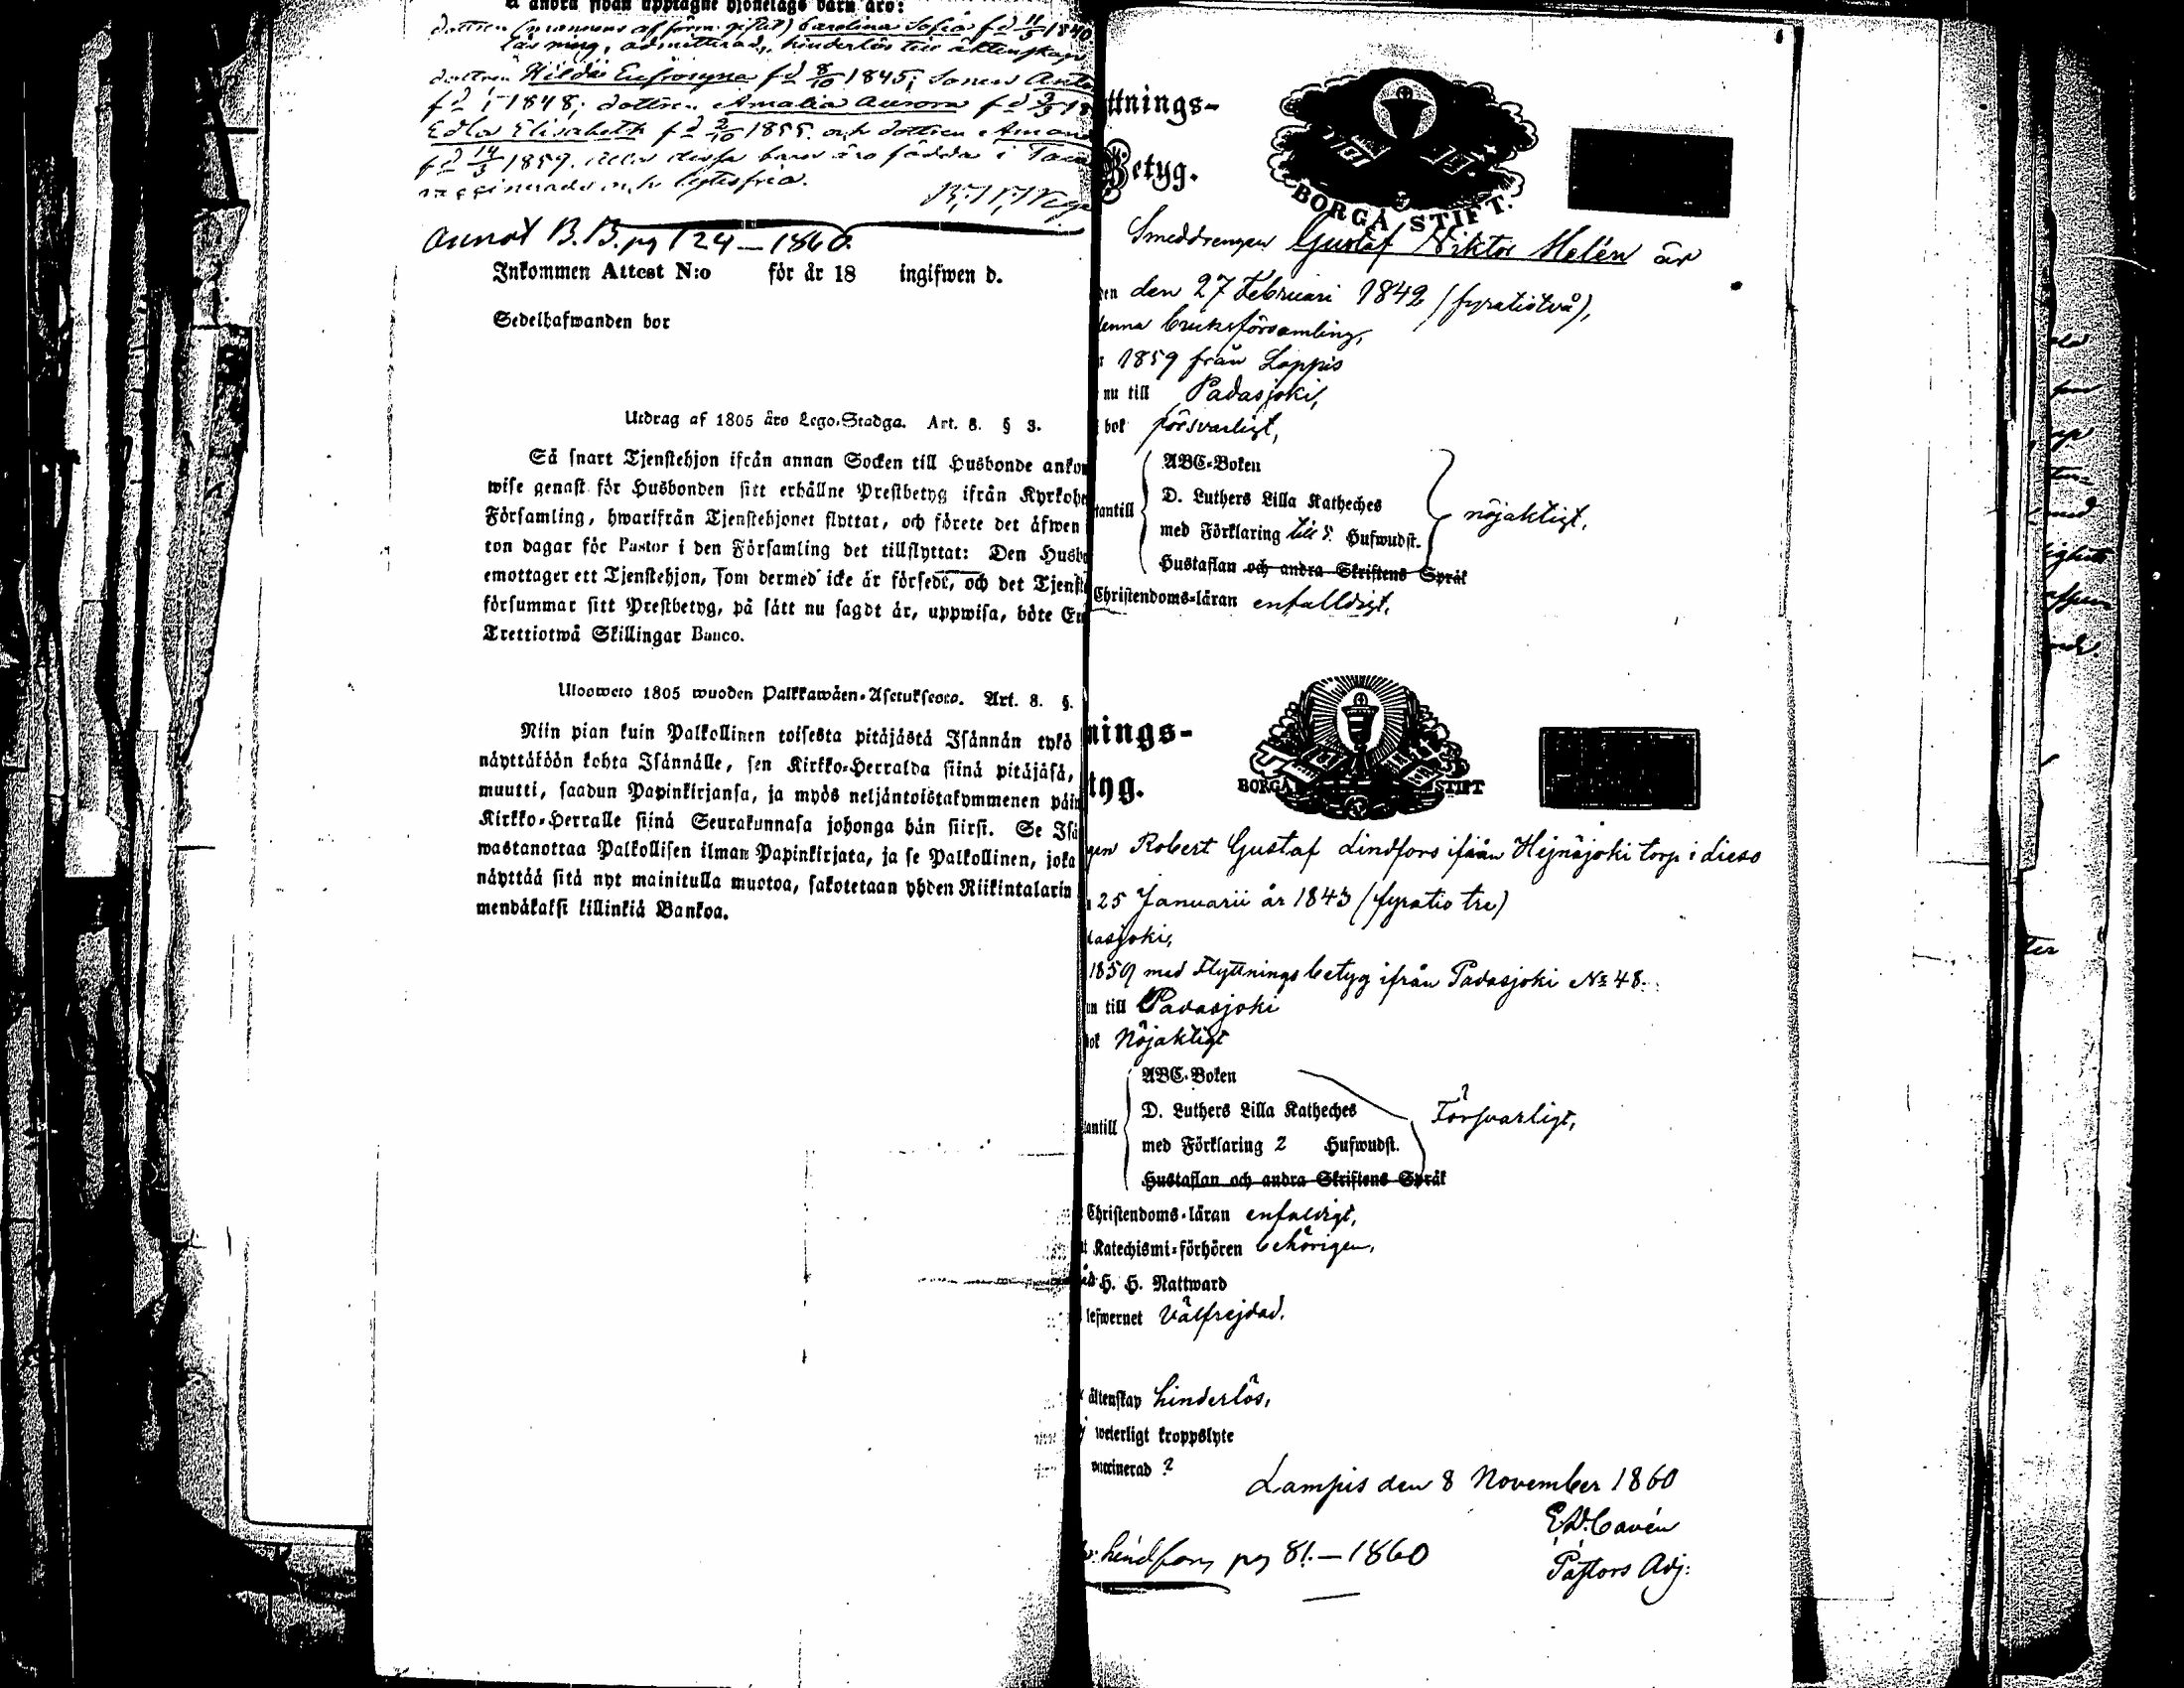 å andra sidan upptagne hjonelags barn äro:
dottren (mannens af förra giftet) Carolina Sofia f d 11/5 1840
läsning, admitterad, hinderlös till äktenskap
dottren Hilda Eufrosyna f d 8/10 1845; sonen Anto
f d 1848; dottren Amalia Aurora f d
Edla Elisabeth f d 2/10 1855. och dottren Aman
f d 14/3 1859. Alla dessa barn äro födda i
vaccinerade och lytesfria.
annot B.B. pg 124–1860.
Inkommen Attest N:o för år 18 ingifwen d.
Sedelhafwanden bor
Utdrag af 1805 åro Lego-Stadga. Art. 8. § 3.
Så snart Tjenstehjon ifrån annan Socken till Husbonde anko
wise genast för Husbonden sitt erhållne Prestbetyg ifrån Kyrkohe
Församling, hwarifrån Tjenstehjonet flyttat, och förete det äfwen
ton dagar för Pastor i den Församling det tillflyttat: Den Husbo
emottager ett Tjenstehjon, som dermed icke är försedt, och det Tjenste
försummar sitt Prestbetyg, på sätt nu sagdt är, uppwisa, böte En
Trettiotwå Skillingar Banco.
Ulosweto 1805 wuoden Palkkawäen-Asetuksesta. Art. 8. §.
Niin pian kuin Palkollinen toisesta pitäjästä Isännän tykö
näyttäköön kohta Isännälle, sen Kirkko-Herralda siinä pitäjäsä,
muutti, saadun Papinkirjansa, ja myös neljäntoistakymmenen päiw
Kirkko-Herralle siinä Seurakunnasa johonga hän siirsi. Se Isä
wastanottaa Palkollisen ilman Papinkirjata, ja se Palkollinen, joka
näyttää sitä nyt mainitulla muotoa, sakotetaan yhden Riikintalarin
mendäkaksi killinkiä Bankoa.
ttnings-
Betyg.
BORGÅ STIFT.
Smeddrengen Gustaf Viktor Helén är
en den 27 Februari 1842 (fyratiotvå),
denna bruksförsamling,
1859 från Loppis
nu till Padasjoki,
bok försvarligt,
ABC-Boken
D. Luthers Lilla Katheches
tantill
med Förklaring till 5. Hufwudst.
nöjaktigt.
Hustaflan och andra Skriftens Språk
Christendoms-läran enfalldigt.
nings-
tyg.
BORGÅ STIFT
gen Robert Gustaf Lindfors ifrån Hejnäjoki torp i Lieso
25 Januarii år 1843 (fyratio tre)
dasjoki,
1859 med Flyttningsbetyg ifrån Padasjoki No 48.
un till Padasjoki
bok Nöjaktigt
ABC-Boken
D. Luthers Lilla Katheches
tantill
Försvarligt,
med Förklaring 2 Hufwudst.
Hustaflan och andra Skriftens Språk
Christendoms-läran enfaldigt,
Katechismi-förhören behörigen,
H. H. Nattward
lefwernet Välfrejdad.
äktenskap hinderlös,
weterligt kroppslyte
vaccinerad ?
Lampis den 8 November 1860
E.W. Cavén
Pastors Adj:
Lindfors pg 81.–1860